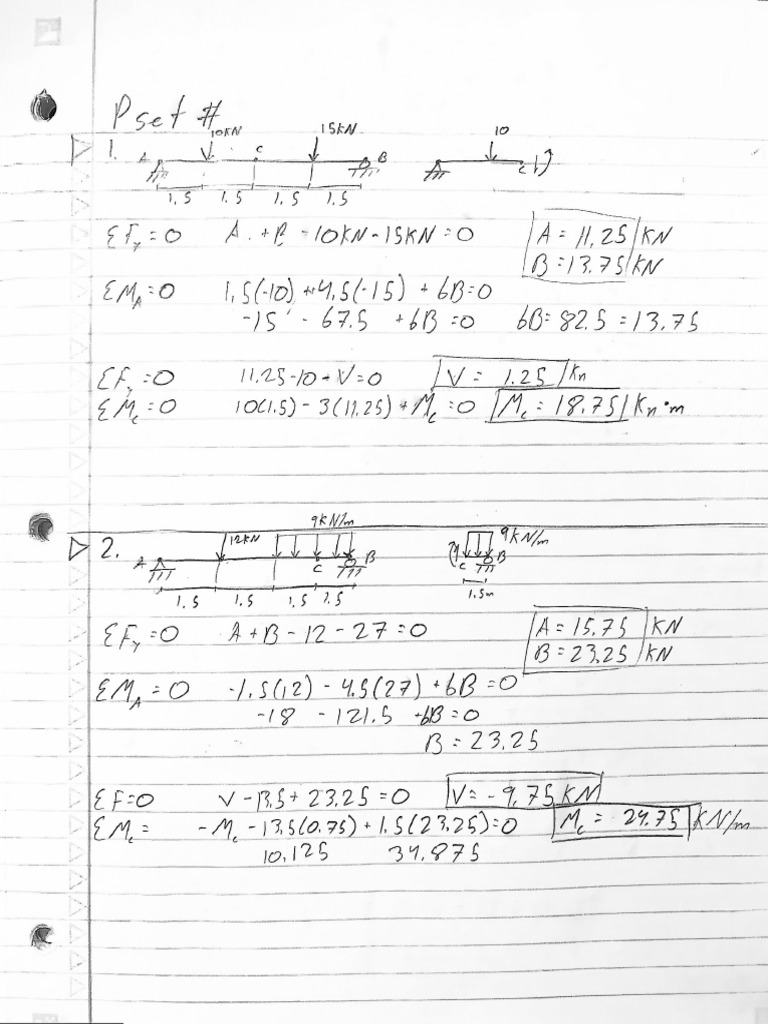 Pset #
1.
10KN 15KN 10
A C B C
1.5 1.5 1.5 1.5
ΣFy=0 A + B - 10KN - 15KN = 0 A = 11.25 KN
B = 13.75 KN
ΣMA=0 1.5(-10) + 4.5(-15) + 6B=0
-15 - 67.5 + 6B = 0 6B= 82.5 = 13.75
ΣFy=0 11.25-10 - V=0 V = 1.25 Kn
ΣMc=0 10(1.5) - 3(11.25) + Mc = 0 Mc = 18.75 Kn·m
2.
12KN 9KN/m 9KN/m
A C B C B
1.5 1.5 1.5 1.5 1.5m
ΣFy=0 A+B - 12 - 27 = 0 A = 15.75 KN
B = 23.25 KN
ΣMA=0 -1.5(12) - 4.5(27) + 6B = 0
-18 - 121.5 + 6B = 0
B = 23.25
ΣF=0 V - 13.5 + 23.25 = 0 V = -9.75 KN
ΣMc= -Mc - 13.5(0.75) + 1.5(23.25)=0 Mc = 24.75 KN/m
10.125 34.875